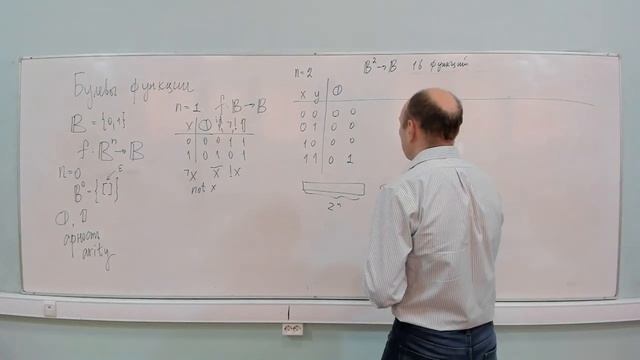 Булевы функции
B = {0,1}
f: Bⁿ→B
n=0
B⁰ = {[]} ε
𝟘, 𝟙
арность
arity
n=1 f: B→B
x 𝟘 id ¬ 𝟙
0 0 0 1 1
1 0 1 0 1
¬x x̅ !x
not x
n=2 B²→B 16 функций
x y 𝟘
0 0 0 0
0 1 0 0
1 0 0 0
1 1 0 1
2ⁿ